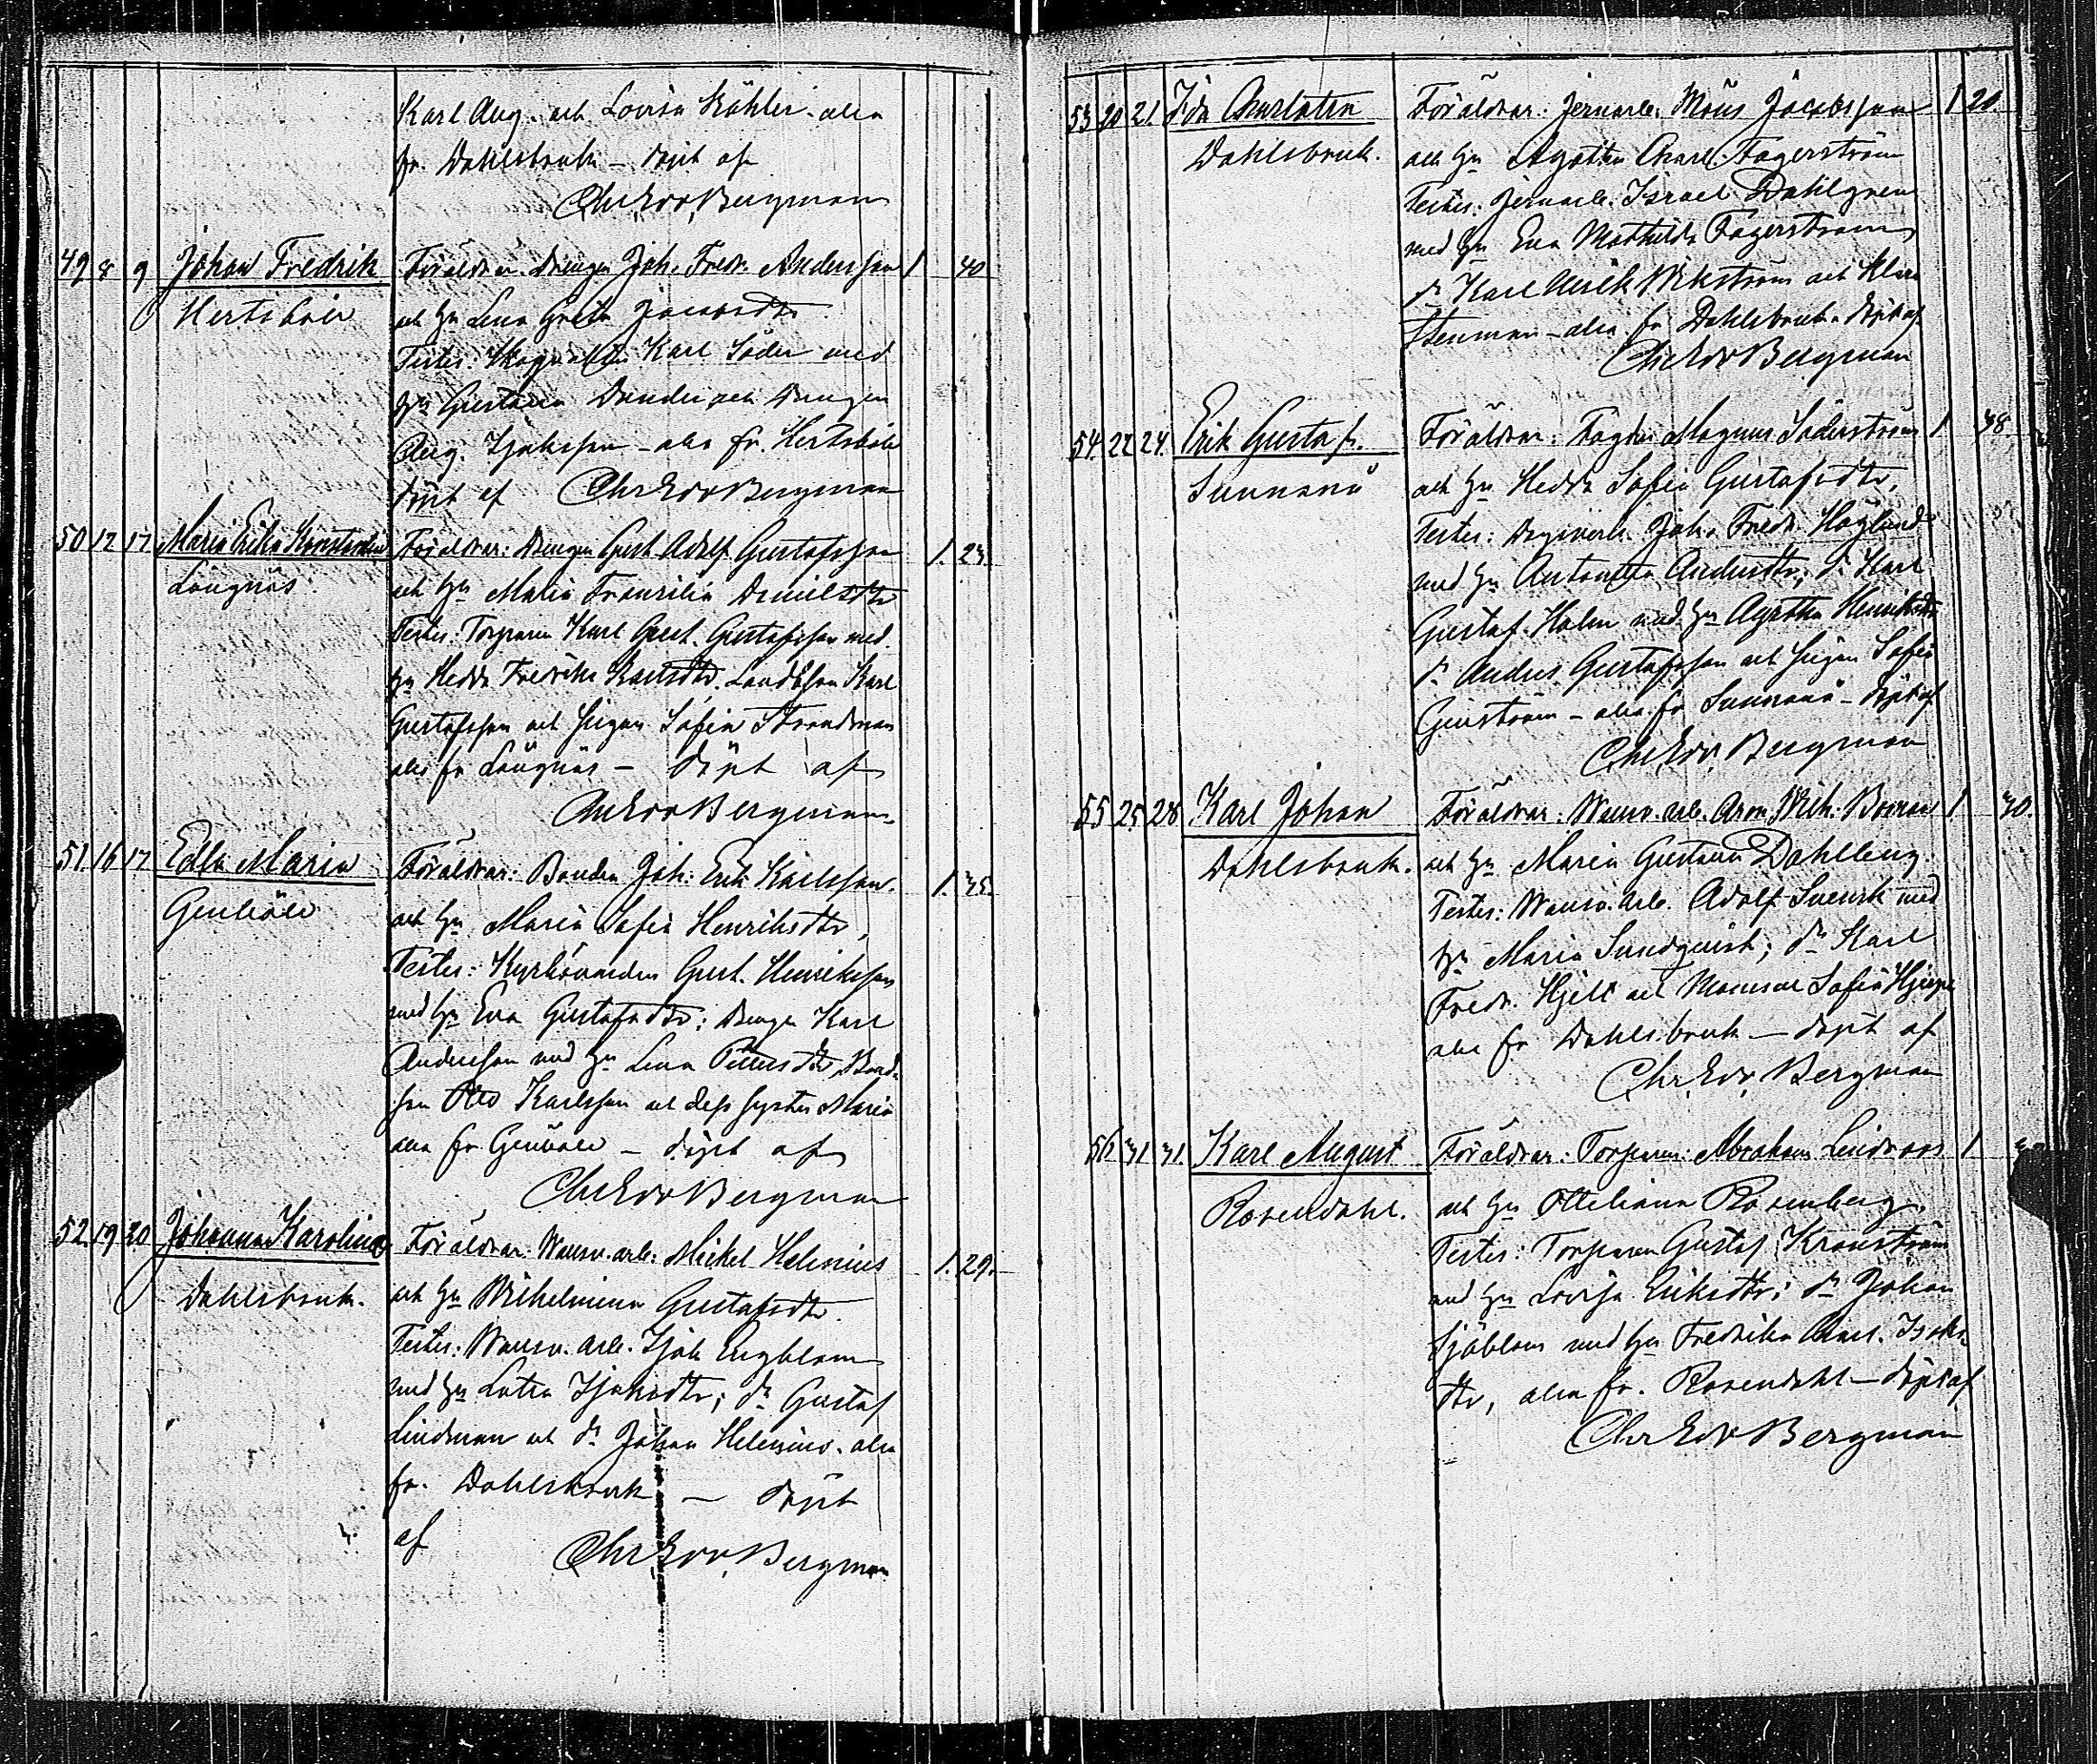 Karl Aug. och Lovisa Köhler alla
fr. Dahlsbruk – döpt af
Chr Edv Bergman
49 8 9 Johan Fredrik Föräldrar: Drengen Joh. Fredr. Andersson 1 40
Hertsböle och hu Lena Greta Jacobsdtr.
Testes: Karl Söder med
hu Gustava och Drengen
Aug. Isaksson – alla fr. Hertsböle
döpt af Chr Edv Bergman
50 12 17 Maria Erika Konstantia Föräldrar: Drengen Gust. Adolf Gustafsson 1. 23.
Långnäs. och hu Maria
Testes: Torparen Karl Gust. Gustafsson med
hu Hedda Fredrika Karlsdtr. Karl
Gustafsson och pigan Sofia Strandman
alla fr Långnäs – döpt af
Chr Edv Bergman
51. 16 17 Edla Maria Föräldrar: Bonden Joh: Erik Karlsson 1. 35.
Genböle och hu Maria Sofia Henriksdtr,
Testes: Kyrkovärden Gust. Henriksson
med hu Eva Gustafsdtr; Drengen Karl
Andersson med hu Lena Pettersdtr, Bond-
son Otto Karlsson och dess syster Maria
alla fr Genböle – döpt af
Chr Edv Bergman
52. 19 20 Johanna Karolina Föräldrar: Mickel Helenius 1. 29.
Dahlsbruk. och hu Wilhelmina Gustafsdtr.
Testes: Isak Engblom
med hu Lovisa Isaksdtr; do Gustaf
Lindman och do Johan Helenius. alla
fr. Dahlsbruk – döpt
af Chr Edv Bergman
53 20 21. Ida Charlotta Föräldrar: Jernarb. Måns Jacobsson 1 20.
Dahlsbruk. och hu Agatha Charl. Fagerström
Testes: Jernarb. Israel Dahlgren
med hu Eva Mathilda Fagerström
do Karl Ulrik Wikström och Klara
Stenman – alla fr Dahlsbruk. döpt af
Chr Edv Bergman
54. 22 24. Erik Gustaf. Föräldrar: Magnus Söderström 1 38.
Sunnanå och hu Hedda Sofia Gustafsdtr,
Testes: Joh. Fredr. Höglund
med hu Antonetta Andersdtr; do Karl
Gustaf Holm med hu Agatha Henriksdtr
do Anders Gustafsson och pigan Sofia
– alla fr Sunnanå – döpt af
Chr Edv Bergman
55 25 28 Karl Johan Föräldrar: Aron Wilh. Boman 1 30.
Dahlsbruk. och hu Maria Gustava Dahlberg.
Testes: Adolf Svensk med
hu Maria Sundqvist; do Karl
Fredr. Hjelt och Mamsell Sofia
alla fr Dahlsbruk – döpt af
Chr Edv Bergman
56 31 31. Karl August Föräldrar: Torparen: Abraham Lindroos 1
Rosendahl. och hu Otteliana Rosenberg.
Testes: Torparen Gustaf Kronström
med hu Lovisa Eriksdtr; do Johan
Sjöblom med hu Fredrika Charl. Isaks-
dtr, alla fr. Rosendahl – döpt af
Chr Edv Bergman